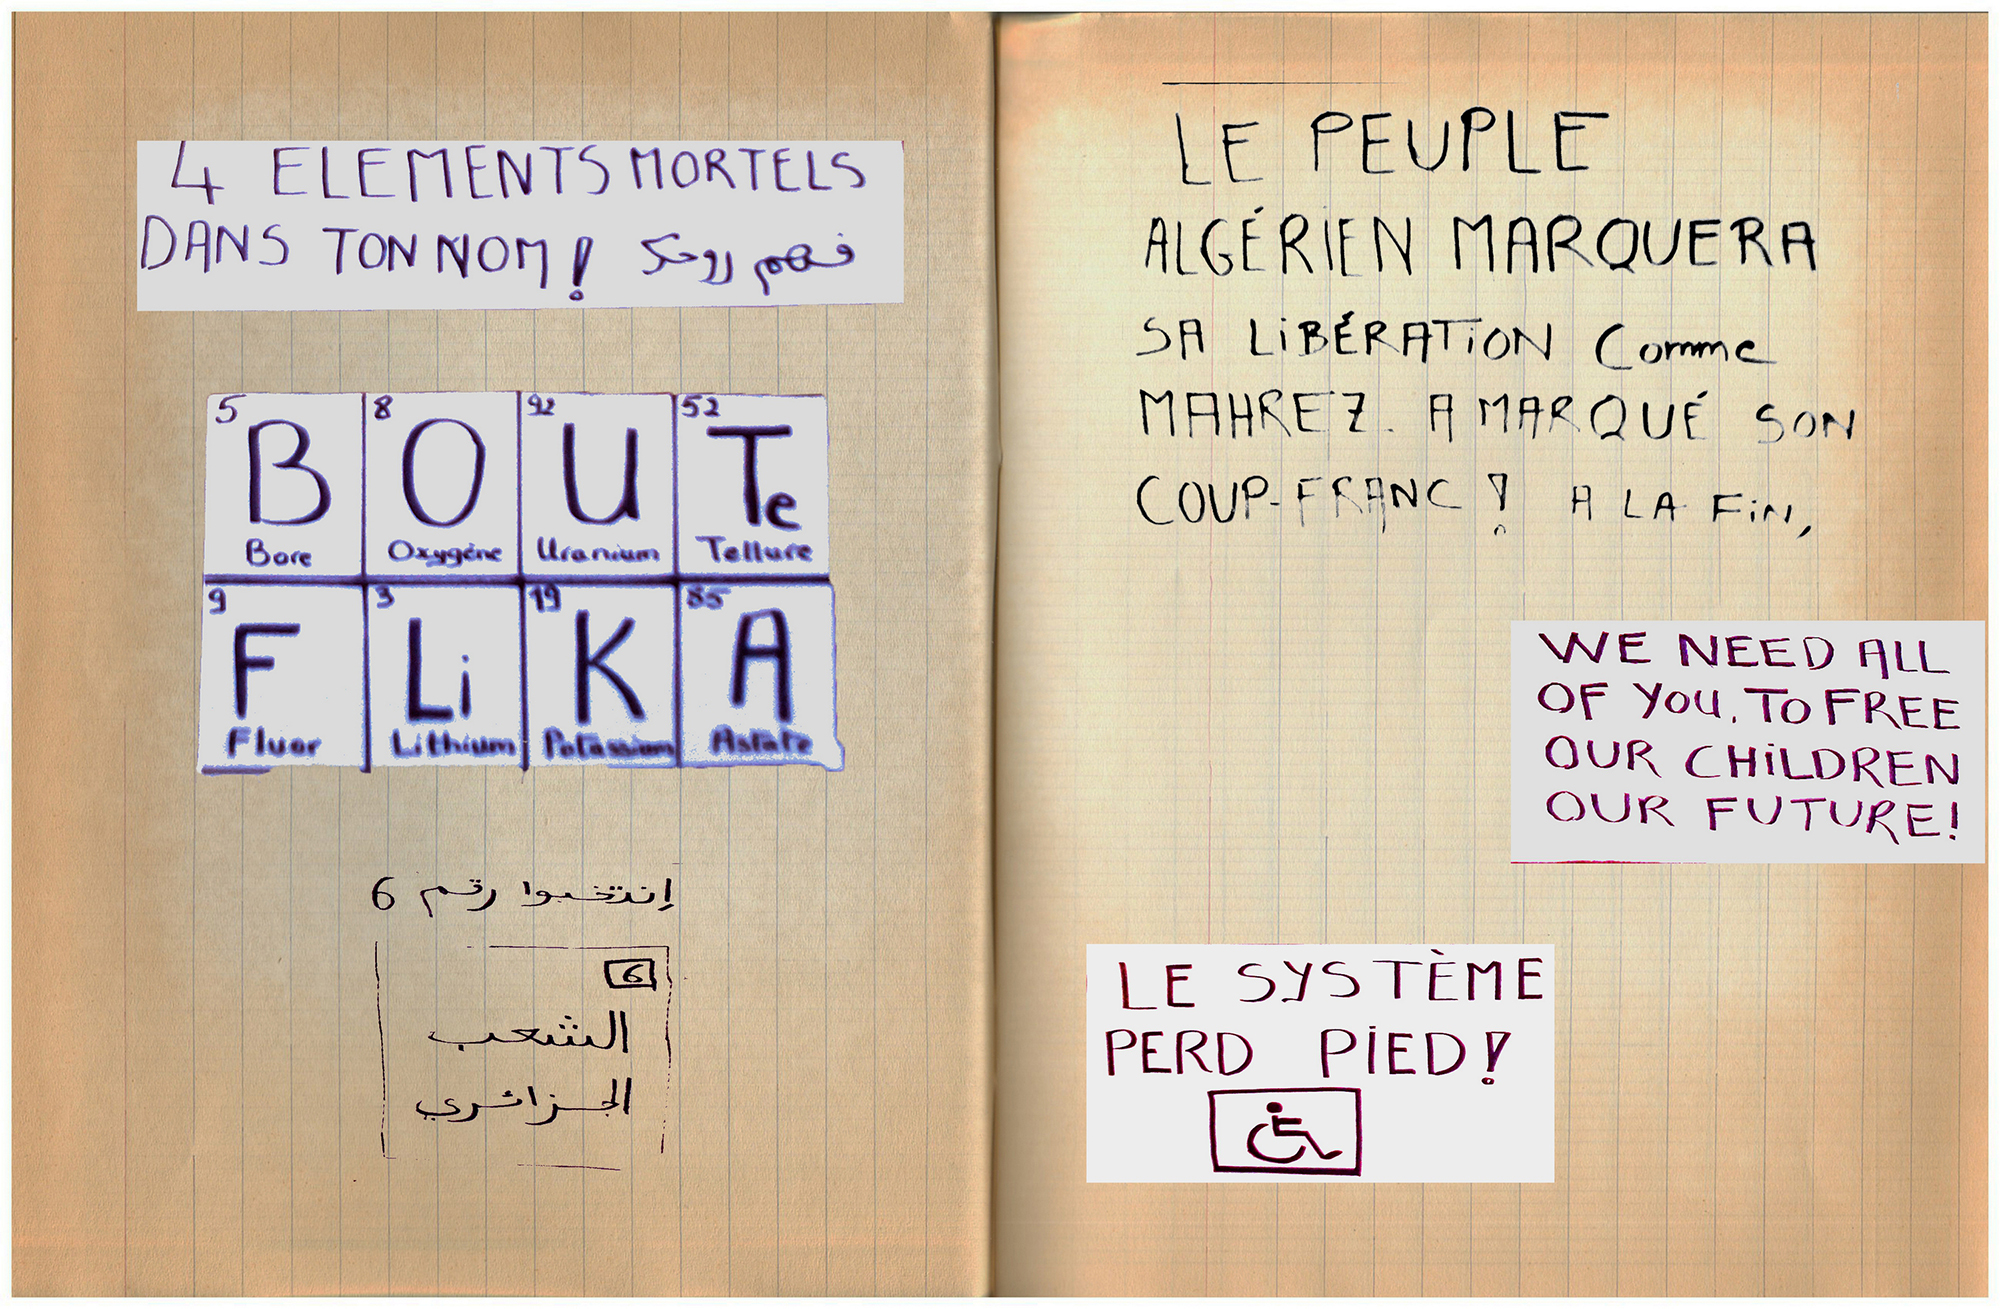 4 ELEMENTS MORTELS
DANS TON NOM! فهم روحك
5 8 92 52
B O U Te
Bore Oxygéne Uranium Tellure
9 3 19 85
F Li K A
Fluor Lithium Potassium Astate
إنتخبوا رقم 6
6
الشعب
الجزائري
LE PEUPLE
ALGÉRIEN MARQUERA
SA LiBÉRATiON Comme
MAHREZ. A MARQUÉ SON
COUP-FRANC! A LA FiN,
WE NEED ALL
OF YOU. TO FREE
OUR CHiLDREN
OUR FUTURE!
LE SYSTÈME
PERD PiED!